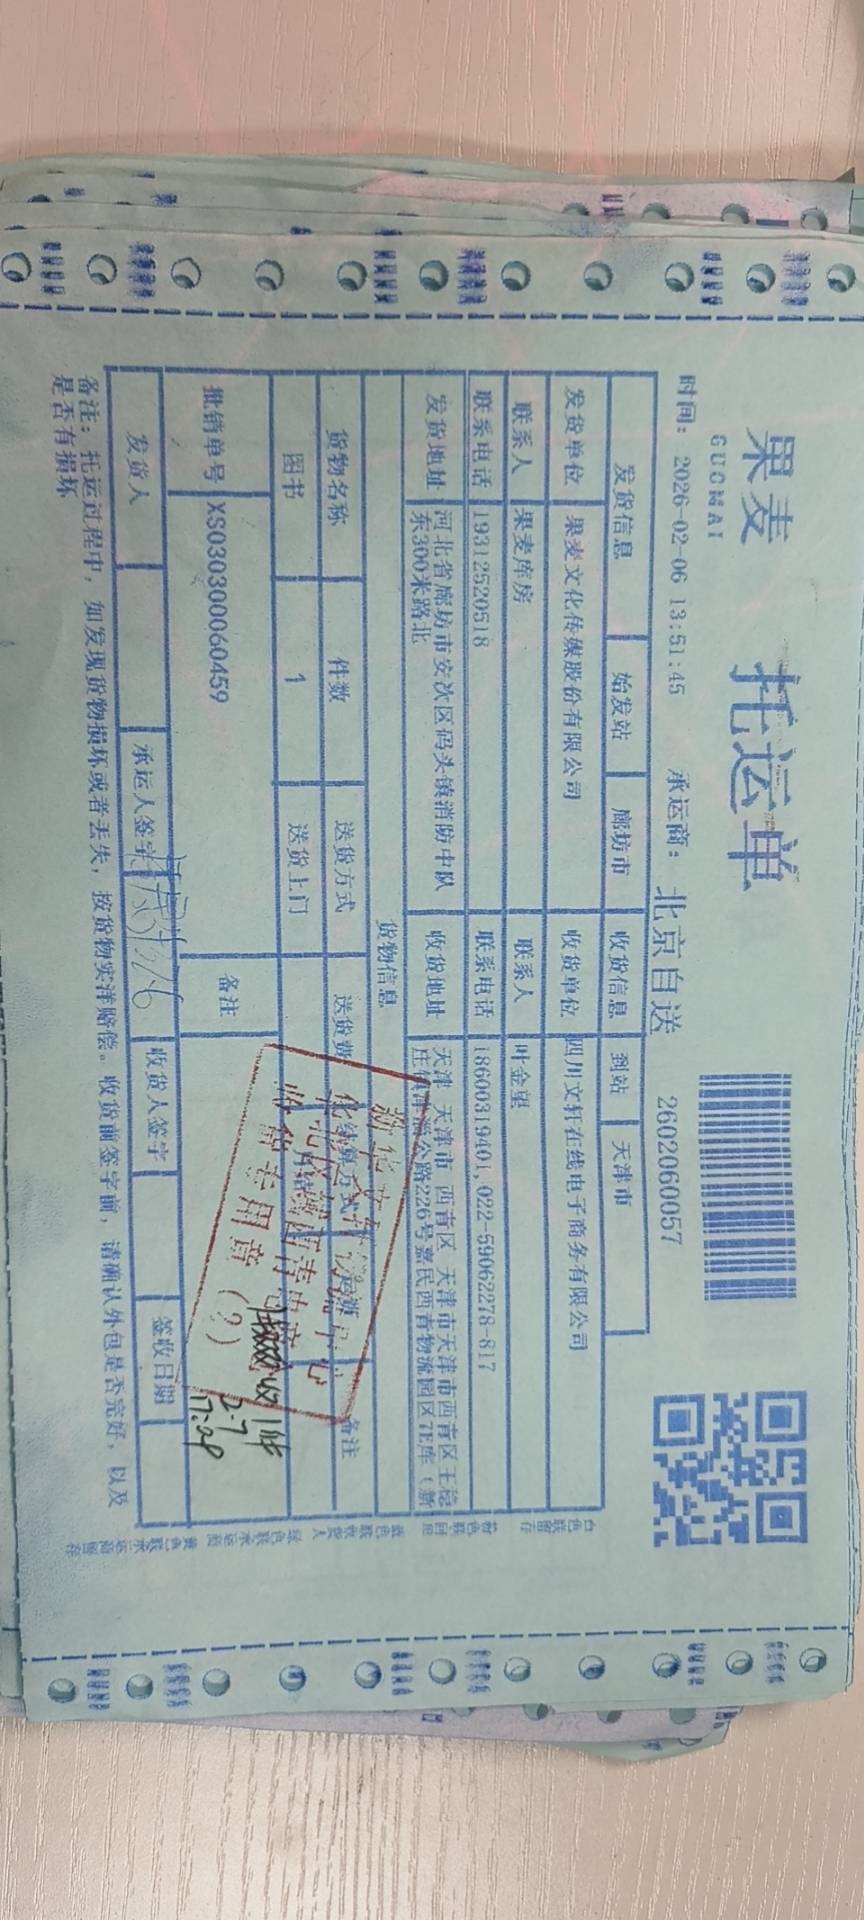 果麦
GUOMAI
托运单
时间: 2026-02-06 13:51:45
承运商: 北京自送
2602060057
发货信息 始发站 廊坊市 收货信息 到站 天津市
发货单位 果麦文化传媒股份有限公司 收货单位 四川文轩在线电子商务有限公司
联系人 果麦库房 联系人 叶金望
联系电话 19312520518 联系电话 18600319401,022-59062278-817
发货地址 河北省廊坊市安次区码头镇消防中队
东300米路北
收货地址 天津 天津市 西青区 天津市天津市西青区王稳
庄镇津淄公路226号嘉民西青物流园区7E库(新
货物信息
货物名称 件数 送货方式 送货费 结算方式 备注
图书 1 送货上门
批销单号 XS030300060459 备注
发货人 承运人签字 收货人签字 签收日期
备注: 托运过程中, 如发现货物损坏或者丢失, 按货物实洋赔偿。收货前签字前, 请确认外包是否完好, 以及
是否有损坏
白色联留存
粉色联回单
蓝色联收货人
绿色联承运商
黄色联承运商留存
收货专用章
1件
2.7
17:28